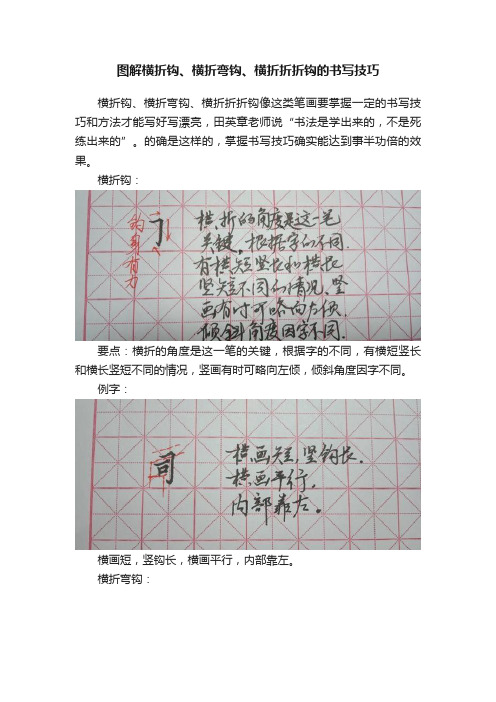 图解横折钩、横折弯钩、横折折折钩的书写技巧
横折钩、横折弯钩、横折折折钩像这类笔画要掌握一定的书写技
巧和方法才能写好写漂亮，田英章老师说“书法是学出来的，不是死
练出来的”。的确是这样的，掌握书写技巧确实能达到事半功倍的效
果。
横折钩：
钩身有力
横折的角度是这一笔
关键。根据字的不同.
有横短竖长和横长
竖短不同的情况、竖
画有时可略向左倾.
倾斜角度因字不同.
要点：横折的角度是这一笔的关键，根据字的不同，有横短竖长
和横长竖短不同的情况，竖画有时可略向左倾，倾斜角度因字不同。
例字：
司
横画短，竖钩长.
横画平行，
内部靠左。
横画短，竖钩长，横画平行，内部靠左。
横折弯钩：